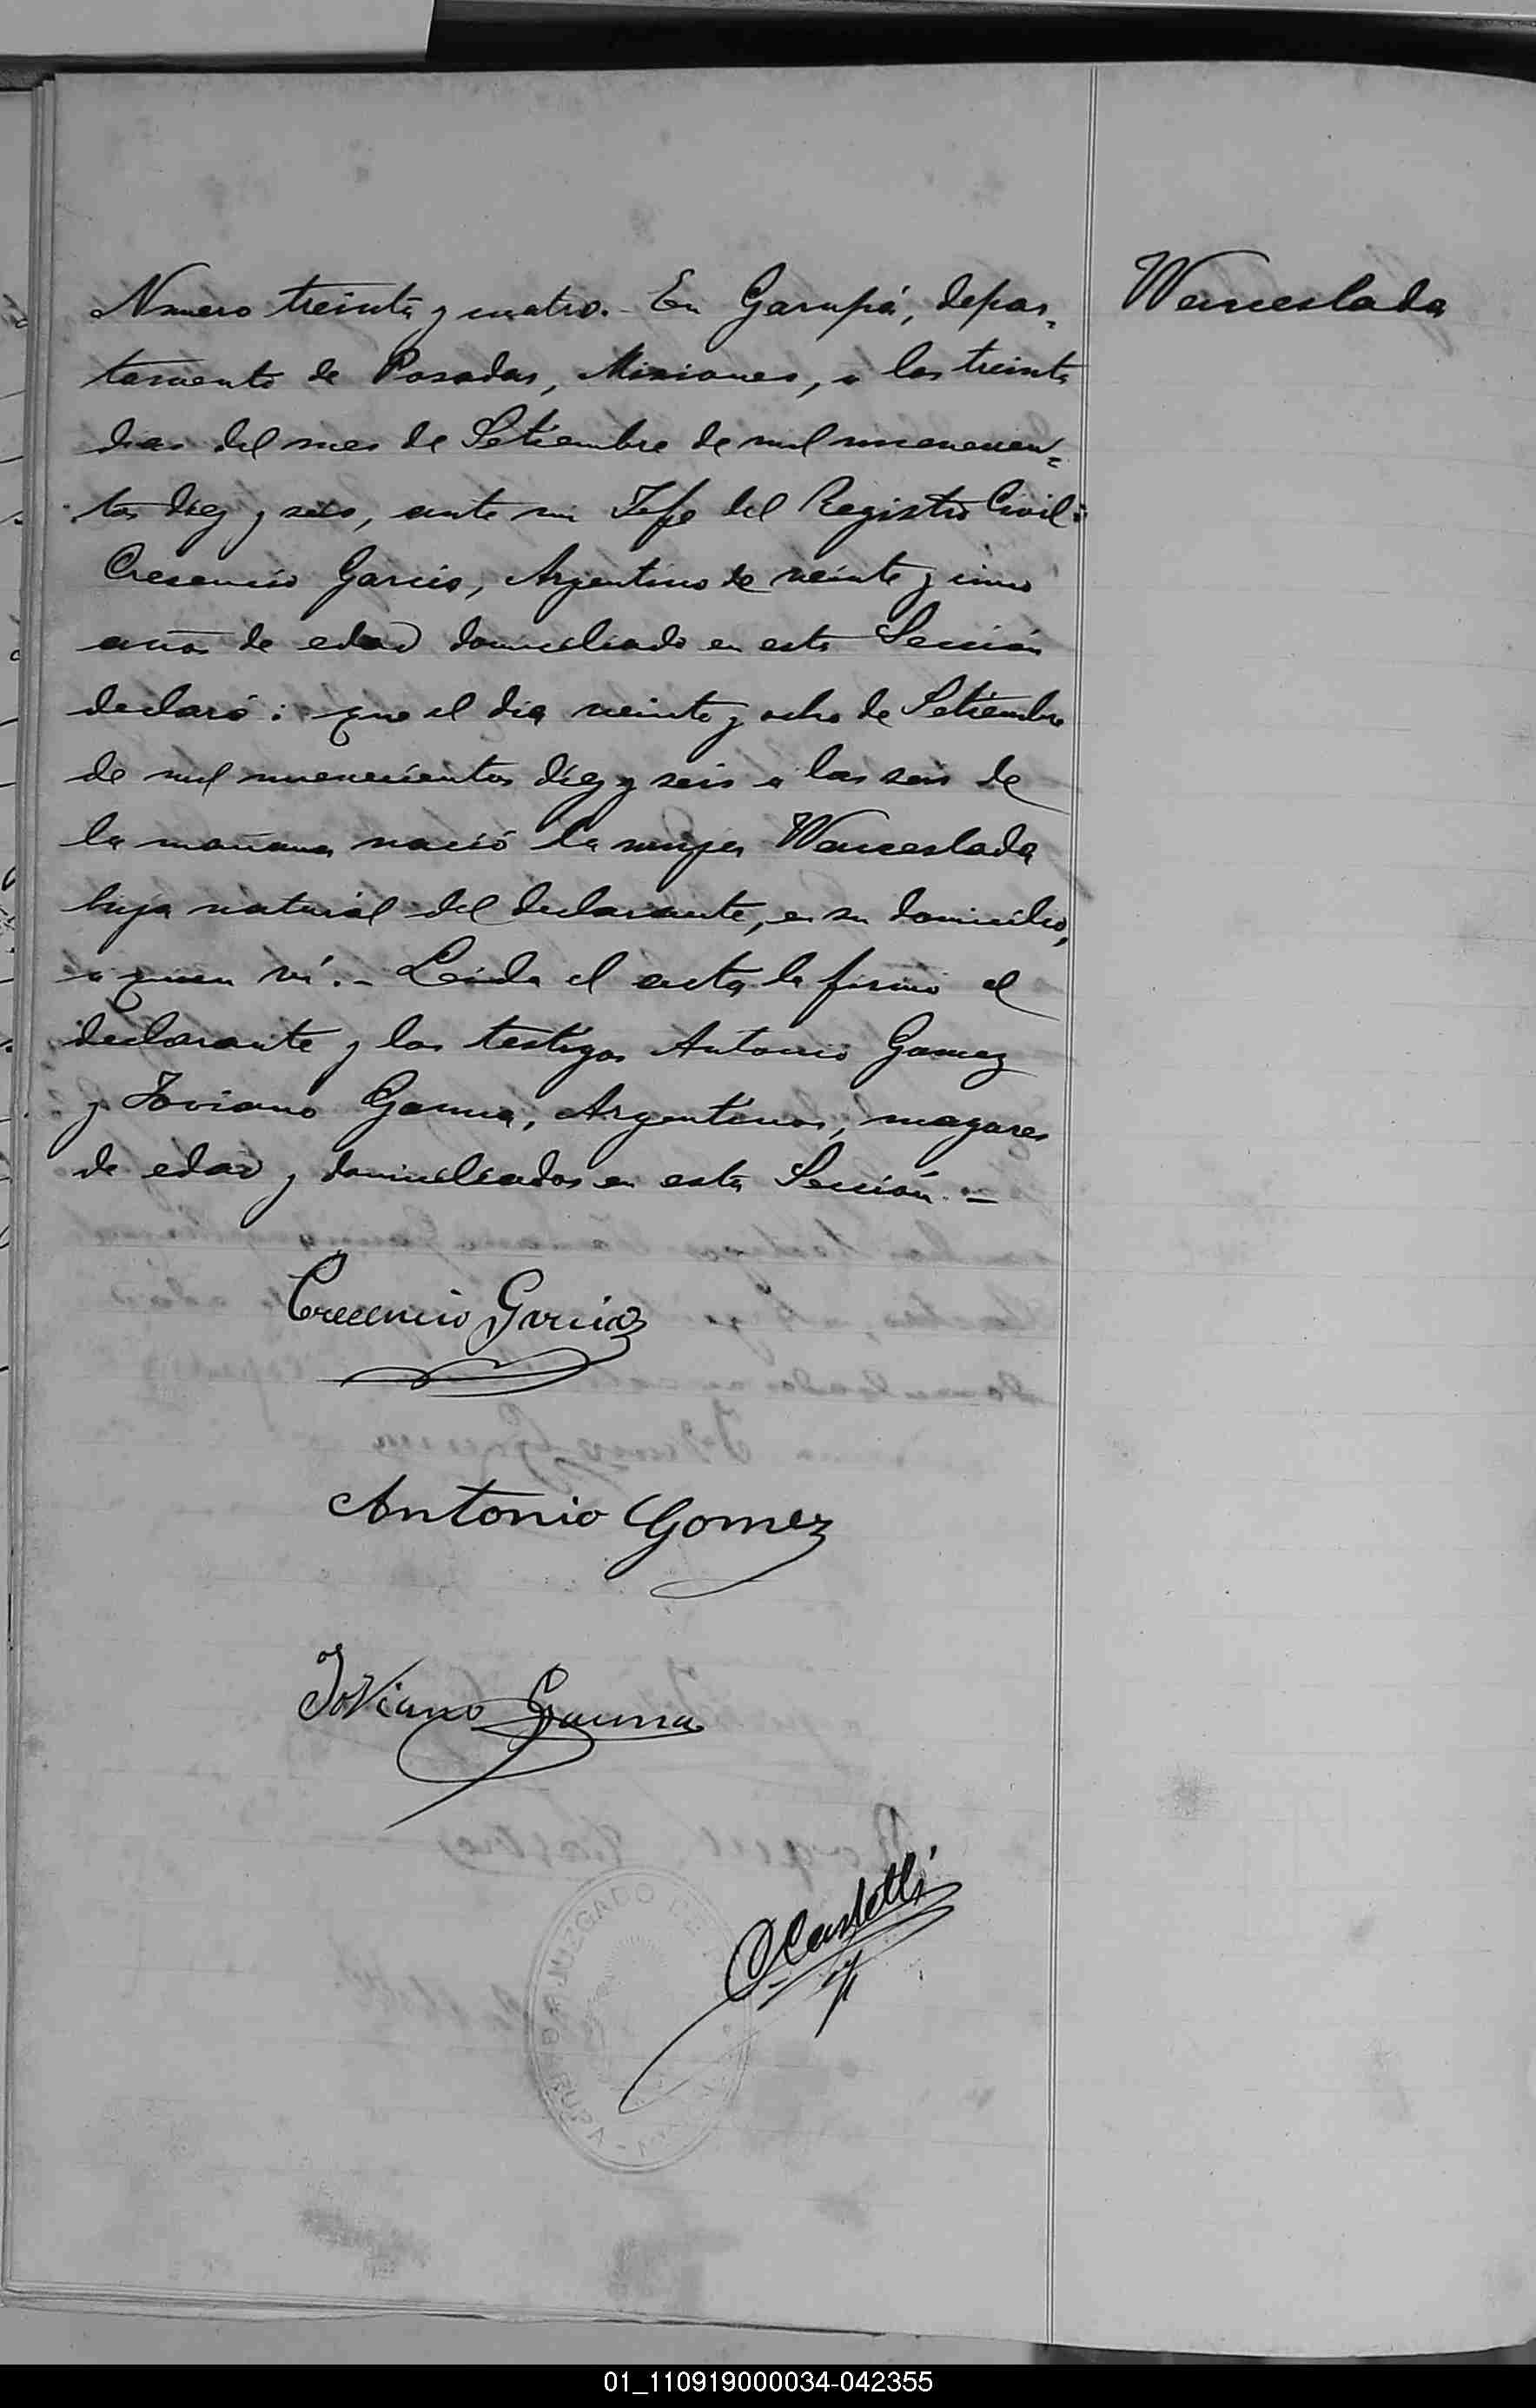 Numero treinta y cuatro.- En Garupá, depar-
Wenceslada
tamento de Posadas, Misiones, a los treinta
dias del mes de Setiembre de mil novecien=
tos diez y seis, ante mi Jefe del Registro Civil:
Cresencio Garcia, Argentino de veinte y cinco
años de edad domiciliado en esta Sección
declaró: que el dia veinte y ocho de Setiembre
de mil novecientos diez y seis a las seis de
la mañana nació la mujer Wenceslada
hija natural del declarante, en su domicilio,
a quien ví.- Leida el acta la firmó el
declarante y los testigos Antonio Gomez
y Joviano Gauna, Argentinos, mayores
de edad y domiciliados en esta Sección.-
Crecencio Garcia
Antonio Gomez
Joviano Gauna
Castelli
JUZGADO DE
01_110919000034-042355